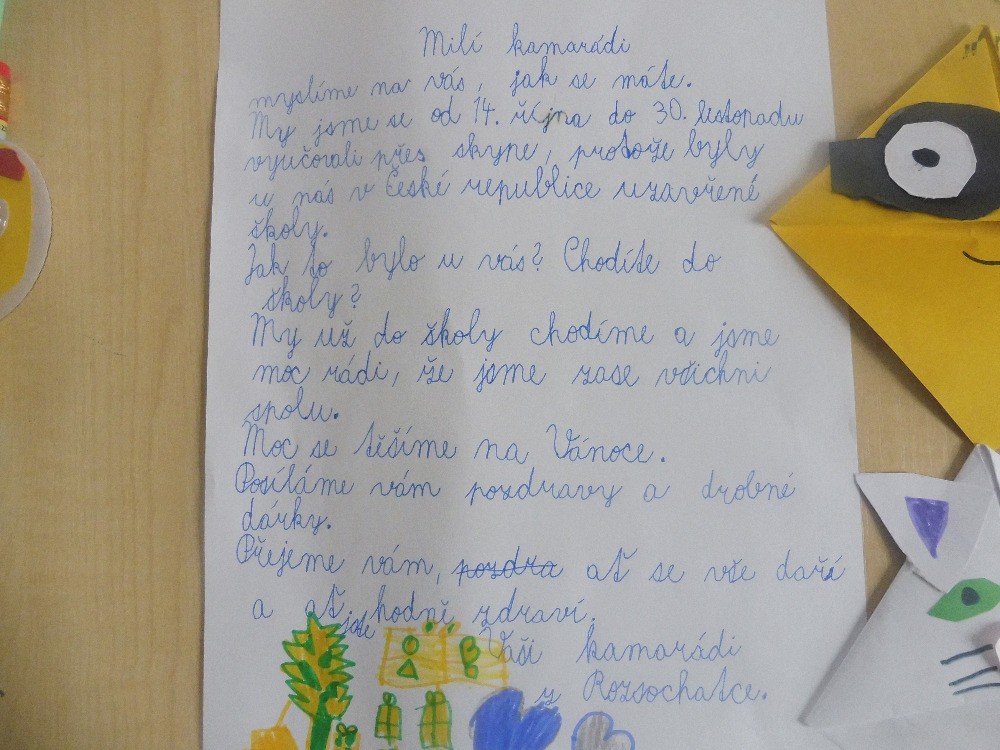 Milí kamarádi
myslíme na vás, jak se máte.
My jsme se od 14. října do 30. listopadu
vyučovali přes skype, protože byly
u nás v České republice uzavřené
školy.
Jak to bylo u vás? Chodíte do
školy?
My už do školy chodíme a jsme
moc rádi, že jsme zase všichni
spolu.
Moc se těšíme na Vánoce.
Posíláme vám pozdravy a drobné
dárky.
Přejeme vám, pozdra ať se vše daří
a ať jste hodně zdraví.
Vaši kamarádi
z Rozsochatce.